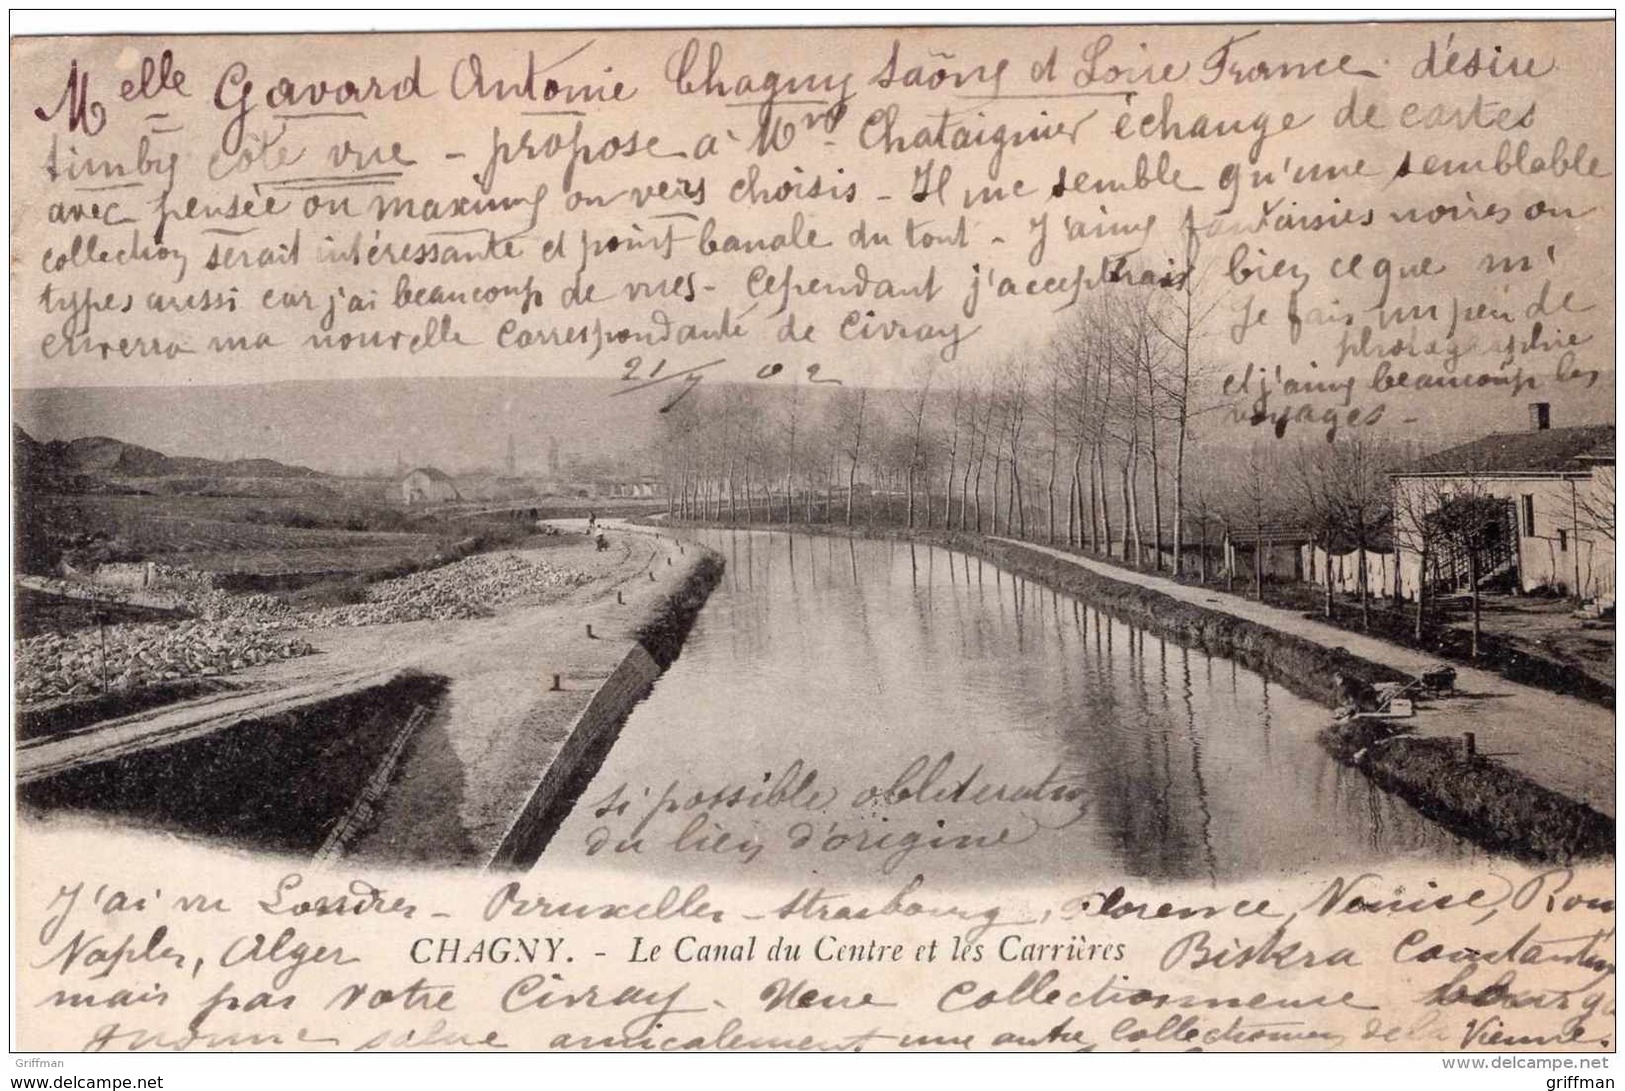 Melle Gavard Antonie Chagny Saône et Loire France. désire
timbre côté vue - propose à Mme Chataignier échange de cartes
avec pensée ou maxime ou vers choisis - Il me semble qu'une semblable
collection serait intéressante et point banale du tout - J'aime fantaisies noires ou
types aussi car j'ai beaucoup de vues - Cependant j'accepterais bien ce que m'
enverra ma nouvelle correspondante de Civray
Je fais un peu de
photographie
et j'aime beaucoup les
voyages -
21/7 02
si possible oblitération
du lieu d'origine
J'ai vu Londres - Bruxelles - Strasbourg, Florence, Venise, Rom
Naples, Alger
CHAGNY. - Le Canal du Centre et les Carrières
Biskra Constantine
mais pas votre Civray. Une collectionneuse bourgui
gnonne salue amicalement une autre collectionneuse de la Vienne.
Griffman
www.delcampe.com
www.delcampe.net
griffman